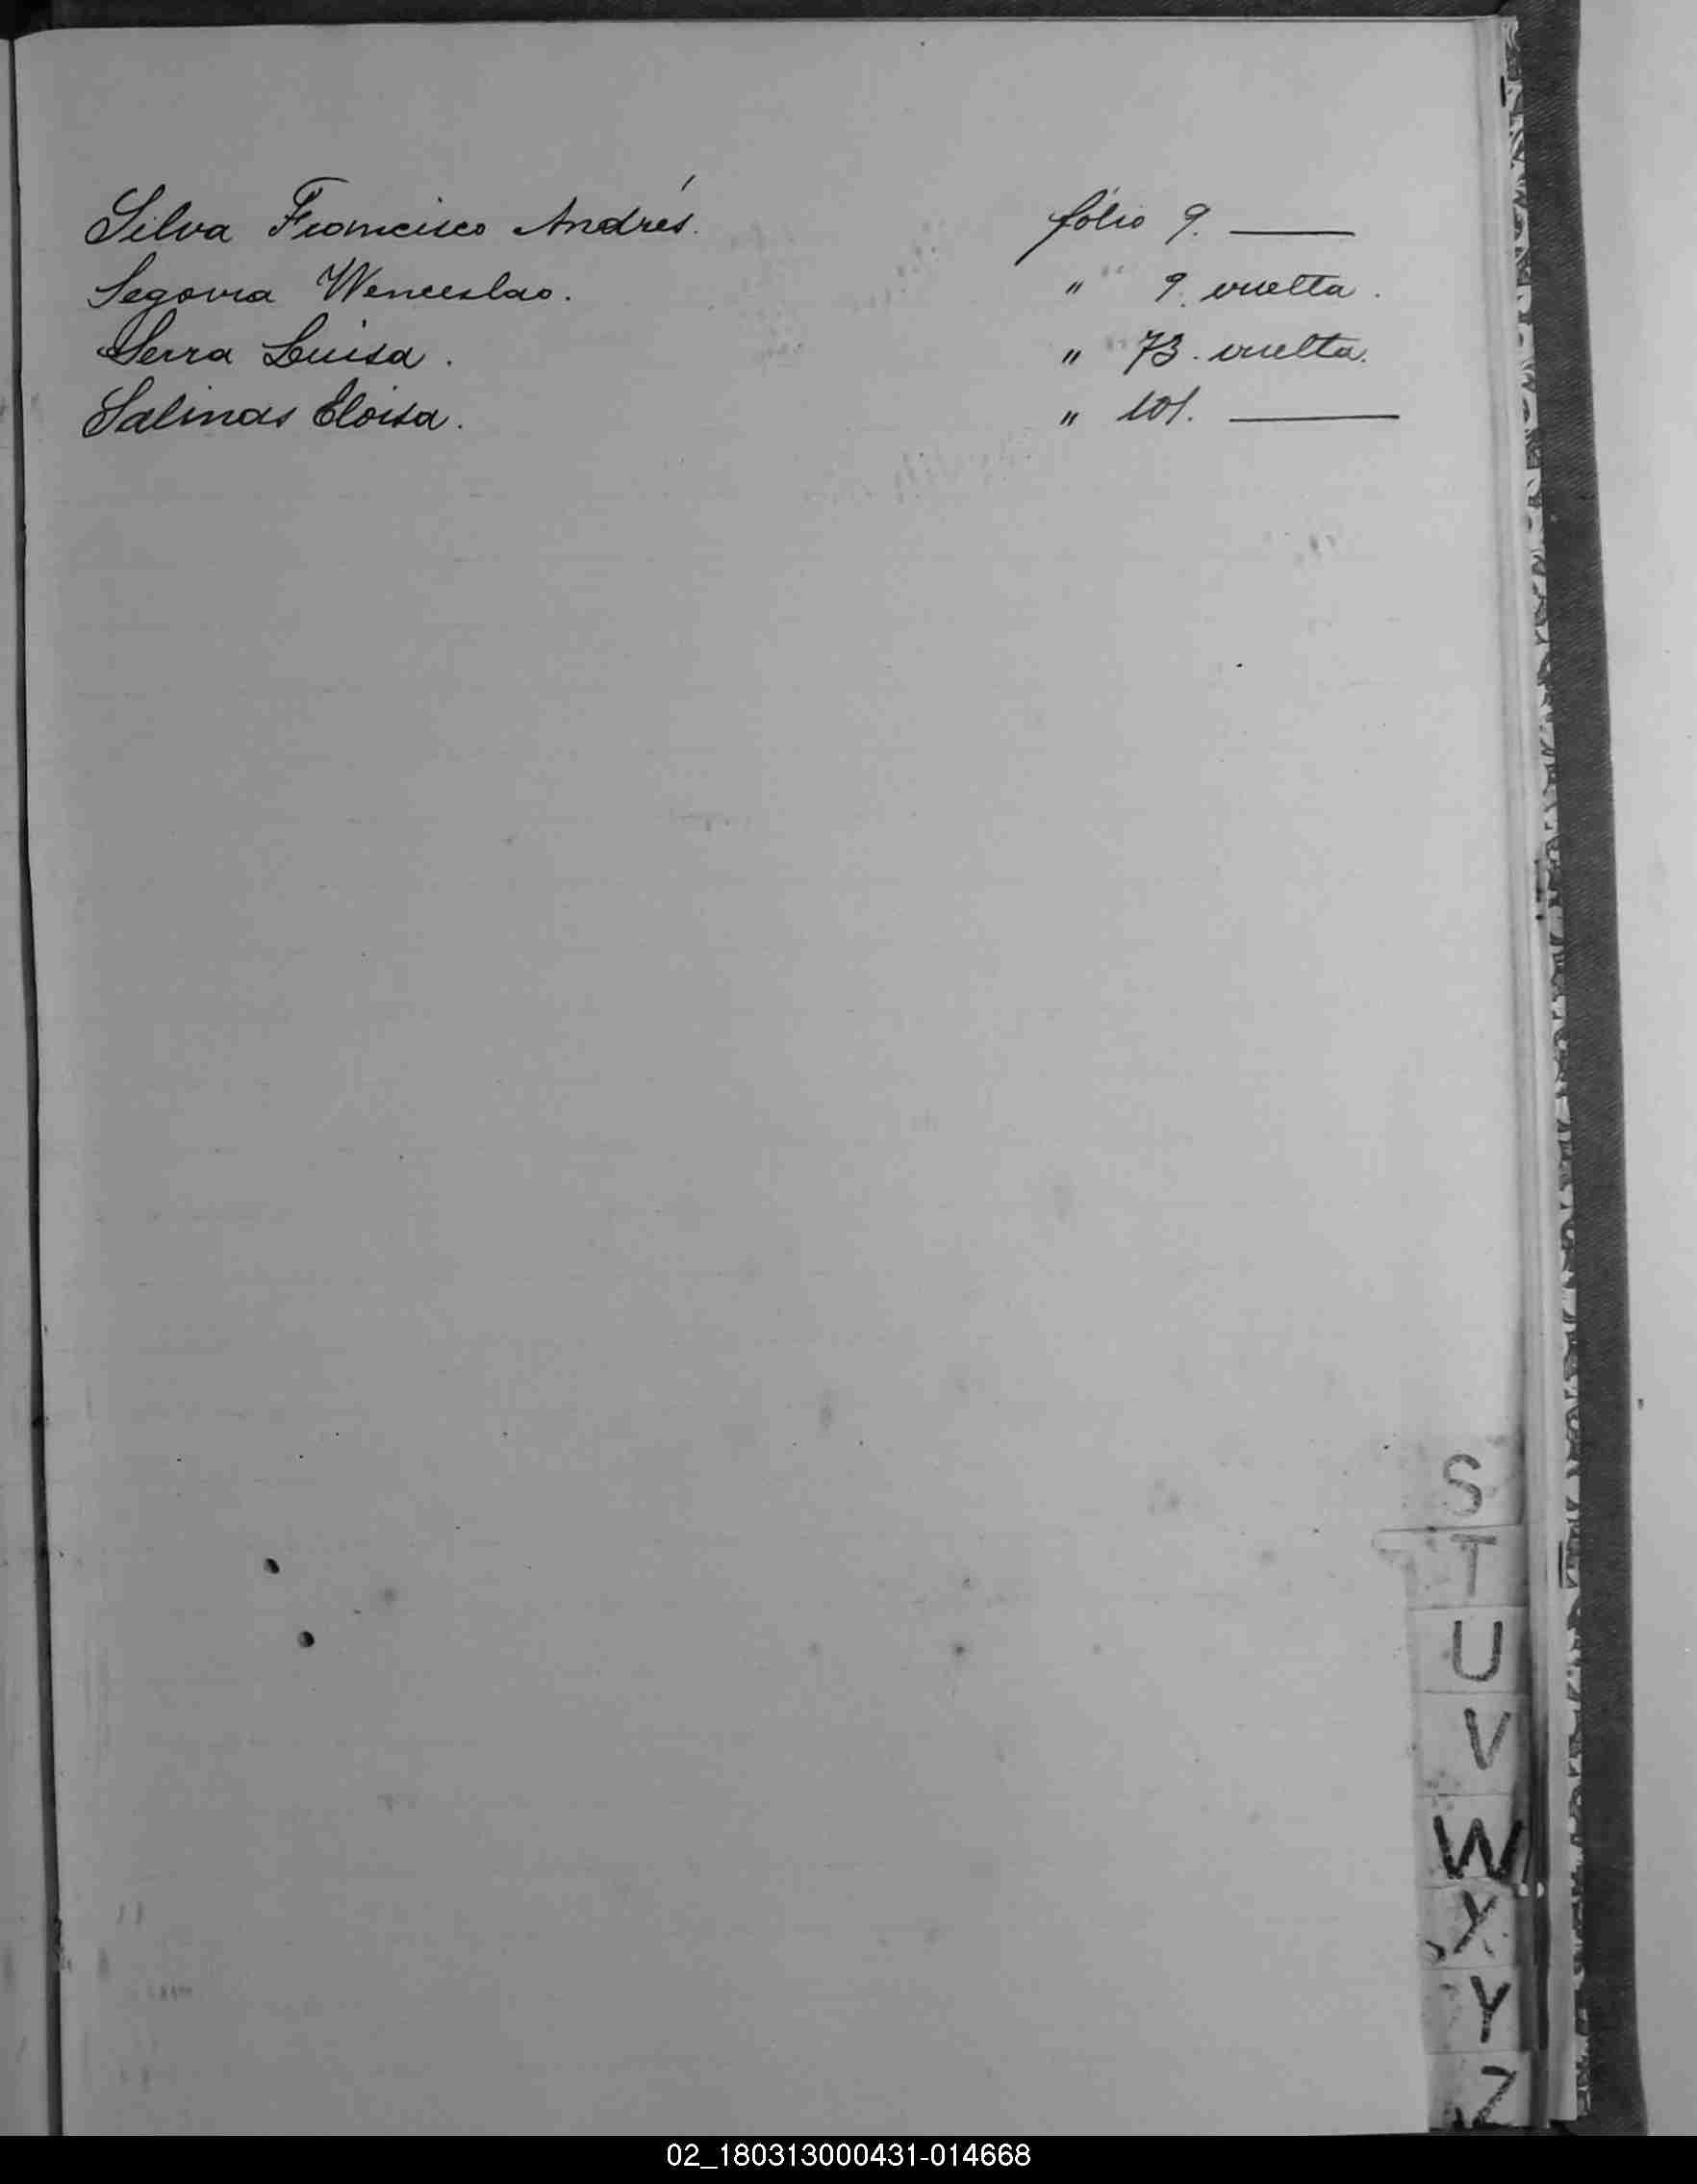 Silva Francisco Andrés. folio 9. ——
Segovia Wenceslao. " 9. vuelta.
Serra Luisa. " 73. vuelta.
Salinas Eloisa. " 101. ——
S
T
U
V
W
X
Y
Z
02_180313000431-014668